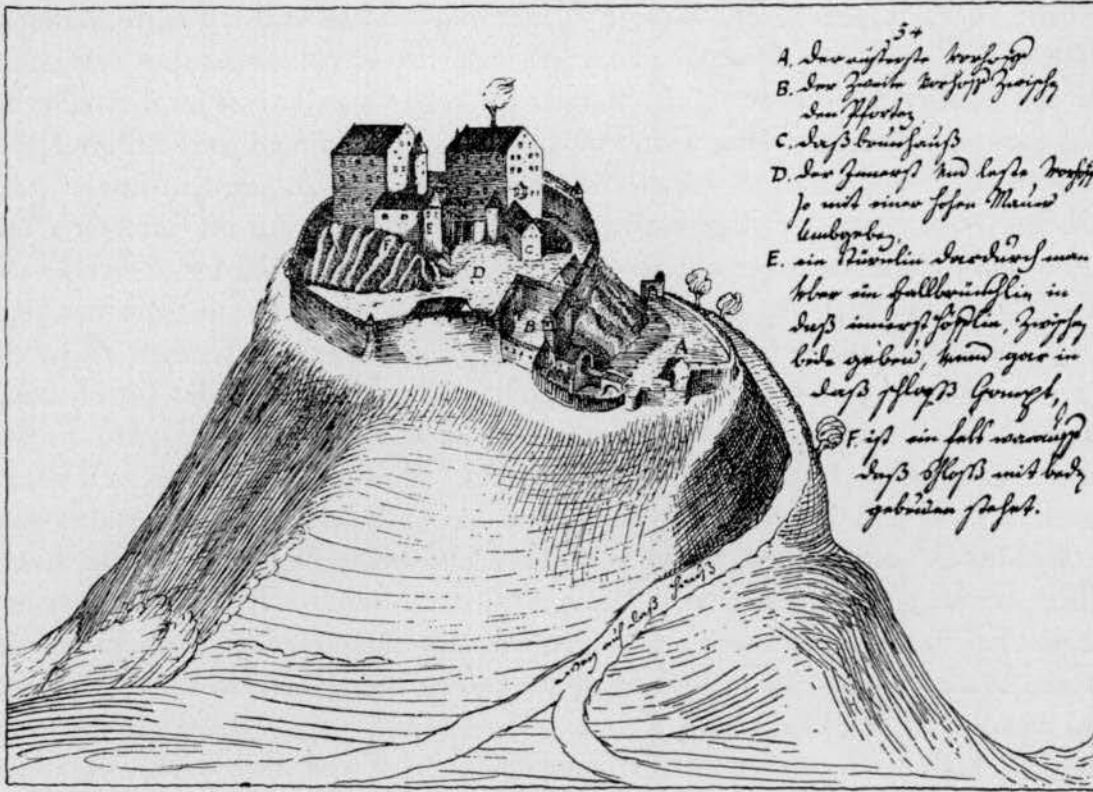 34
A. Der eüsserste Vorhoff
B. Der Zweite Vorhoff Zwischen
den Pforten
C. Daß brunhauß
D. Der Jnnerst und leste Vorhoff
so mit einer hohen Mauer
Umbgeben,
E. ein Türnlin dardurch man
über ein Fallbrücklin in
daß innerst höfflin, Zwischen
bede gebeü, unnd gar in
daß schloß kompt,
F. ist ein fels warauff
daß Schloß mit beden
gebeüwen stehet.
A
B
C
D
E
weg auf daß hauß